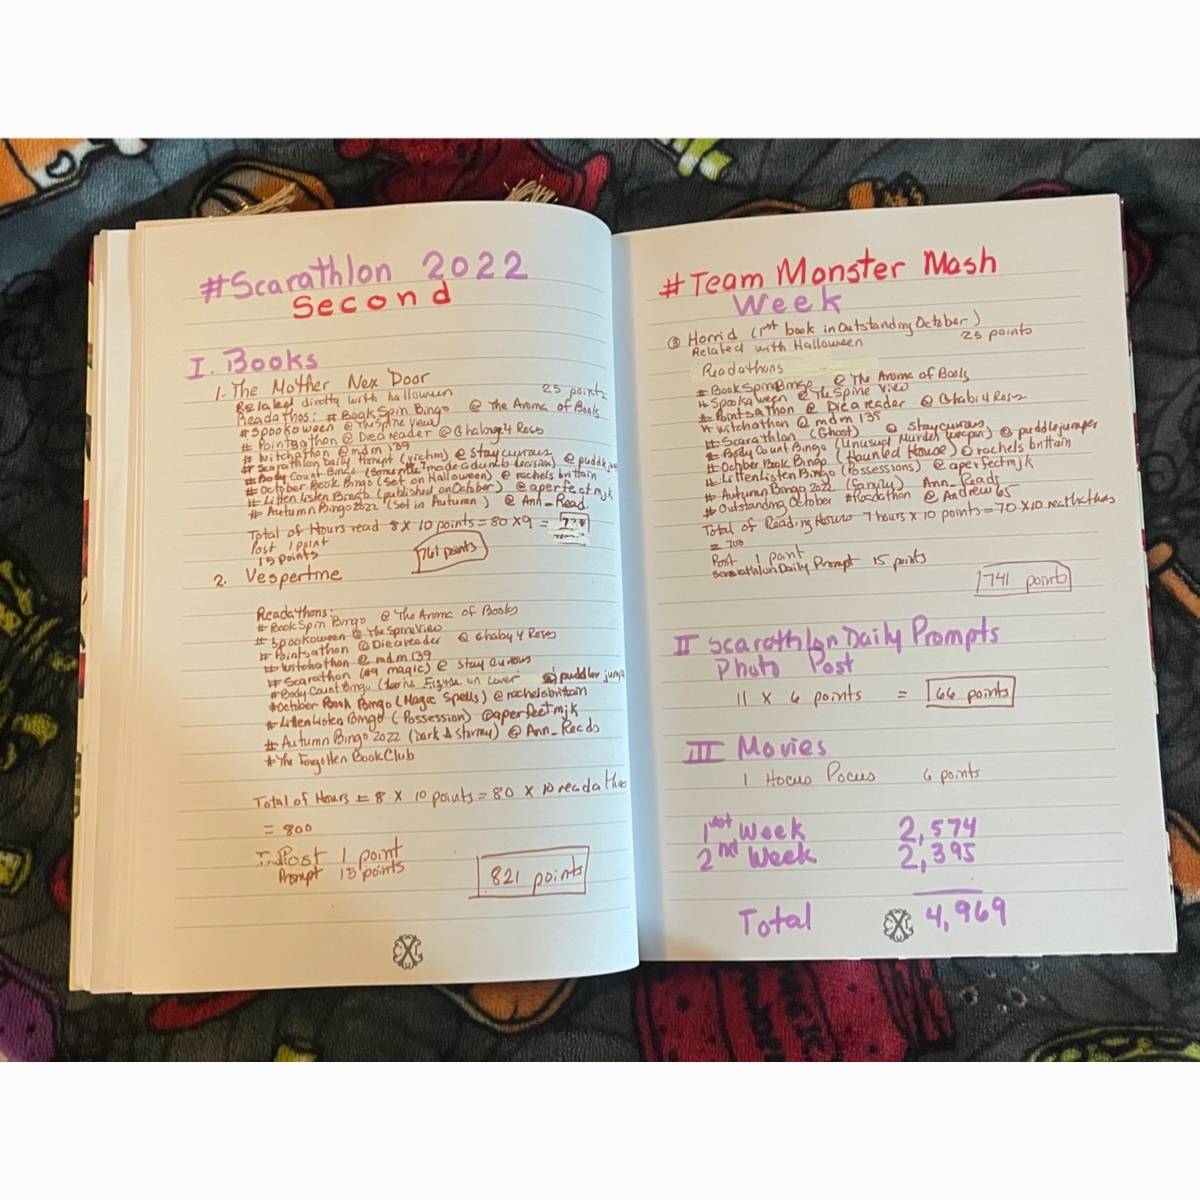 #Scarathlon 2022
Second
I. Books
1. The Mother Nex Door
Related directly with halloween 25 points
Readathos: # Book Spin Bingo @ The Aroma of Books
# Spookoween @ The Spine View
# Pointsathon @ Diea reader @ Ghabry4 Ross
# Witchathon @ mdm139
# Scarathlon Daily Prompt (victim) @ Stay curous
# Body Count Bingo (Someone made a dumb decision) @ puddlejum
# October Book Bingo (Set on Halloween) @ rachels brittain
# Litten Listen Bingo (published on October) @ aperfectmjk
# Autumn Bingo 2022 (Set in Autumn) @ Ann_Read.
Total of Hours read 8 X 10 points = 80 X 9 =
Post 1 Point
15 points
761 points
2. Vespertine
Readathons:
# Book Spin Bingo @ The Aroma of Books
# Spookoween @ The Spine View
# Pointsathon @ Diea reader @ Ghaby 4 Roses
# Witchathon @ mdm139
# Scarathon (#9 magic) @ Stay Curous
# Body Count Bingo Figure on cover @ puddler jump
# October Book Bingo (Magic Spells) @ rachelsbrittain
# Litten Listen Bingo (Possession) @aperfectmjk
# Autumn Bingo 2022 (Dark & stormy) @ Ann_Reads
# The Forgotten Book Club
Total of Hours = 8 X 10 points = 80 X 10 readathos
= 800
Post 1 point
Prompt 15 points
821 points
# Team Monster Mash
Week
③ Horrid (1st book in Outstanding October)
Related with Halloween 25 points
Readathons
# Book Spin Bingo @ The Aroma of Books
# Spookaween @ The Spine View
# Pointsathon @ Diea reader @ Ghabi 4 Roses
# Witchathon @ mdm 139
# Scarathlon (Ghost) @ Staycurous
# Body Count Bingo (Unusual Murder weapon) @ puddlejumper
# October Book Bingo (Haunted House) @ rachels brittain
# Litten Listen Bingo (Possessions) @ aperfectmjk
# Autumn Bingo 2022 (family) Ann_Reads
# Outstanding October #Readathon @ Andrew65
Total of Reading Hours 7 hours X 10 points = 70 X 10
= 700
Post 1 point
Scarathlon Daily Prompt 15 points
741 points
II Scarathlon Daily Prompts
Photo Post
11 X 6 points = 66 points
III Movies
1 Hocus Pocus 6 points
1st Week 2,574
2nd Week 2,395
Total 4,969